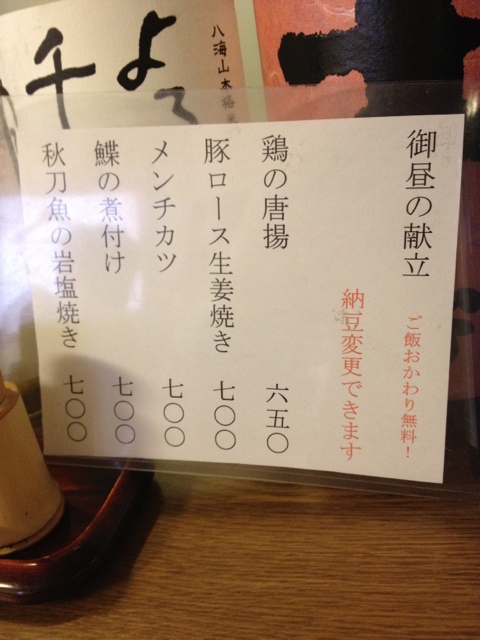 御昼の献立
ご飯おかわり無料!
納豆変更できます
鶏の唐揚 六五〇
豚ロース生姜焼き 七〇〇
メンチカツ 七〇〇
鰈の煮付け 七〇〇
秋刀魚の岩塩焼き 七〇〇
八海山本格米
よろ
千